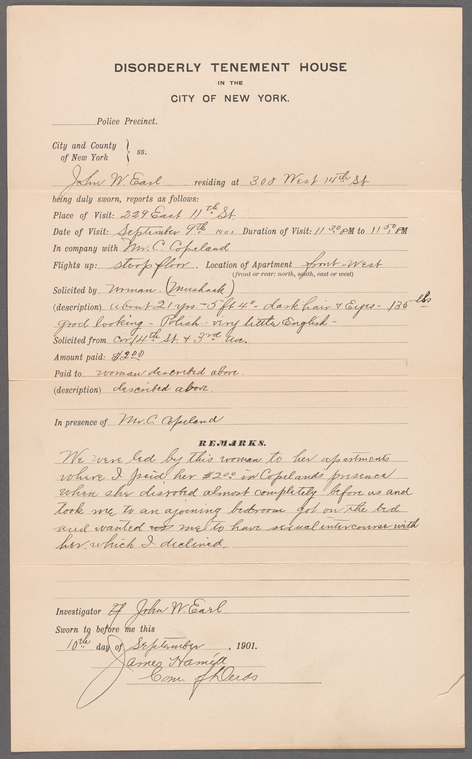 DISORDERLY TENEMENT HOUSE
IN THE
CITY OF NEW YORK.
Police Precinct.
City and County
of New York } ss.
John W. Earl residing at 308 West 14th St
being duly sworn, reports as follows:
Place of Visit: 229 East 11th St
Date of Visit: September 9th 1901 Duration of Visit: 11 30 PM to 11 50 PM
In company with Mr. C. Copeland
Flights up: stoop floor. Location of Apartment front-West
(front or rear: north, south, east or west)
Solicited by woman. (Mushack)
(description) about 21 yrs - 5 ft 4" - dark hair & Eyes - 135 lbs
good looking - Polish - very little English -
Solicited from cor 14th St & 3rd Ave.
Amount paid: $2.00
Paid to woman described above.
(description) described above.
In presence of Mr. C. Copeland
REMARKS.
We were led by this woman to her apartments
where I paid her $2.00 in Copelands presence
when she disrobed almost completely before us and
took me to an ajoining bedroom got on the bed
and wanted me to have sexual intercourse with
her, which I declined.
Investigator John W. Earl
Sworn to before me this
10th day of September, 1901.
James Hamill
Com. of Deeds